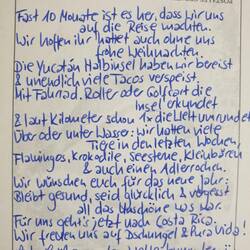 Fast 10 Monate ist es her, dass wir uns
auf die Reise machten.
Wir hoffen ihr hattet auch ohne uns
frohe Weihnachten.
Die Yucatán Halbinsel haben wir bereist
& unendlich viele Tacos verspeist.
Mit Fahrrad, Roller oder Golfcart die
Insel erkundet
& laut Kilometer schon 1x die Welt umrundet
Über oder unter Wasser: wir hatten viele
Tiere in den letzten Wochen,
Flamingos, Krokodile, Seesterne, Kleinbären
& auch einen Adlerrochen.
Wir wünschen euch für das neue Jahr:
Bleibt gesund, seid glücklich & vergesst
all das was schon war.
Für uns geht's jetzt nach Costa Rica.
Wir freuen uns auf Dschungel & Pura Vida!